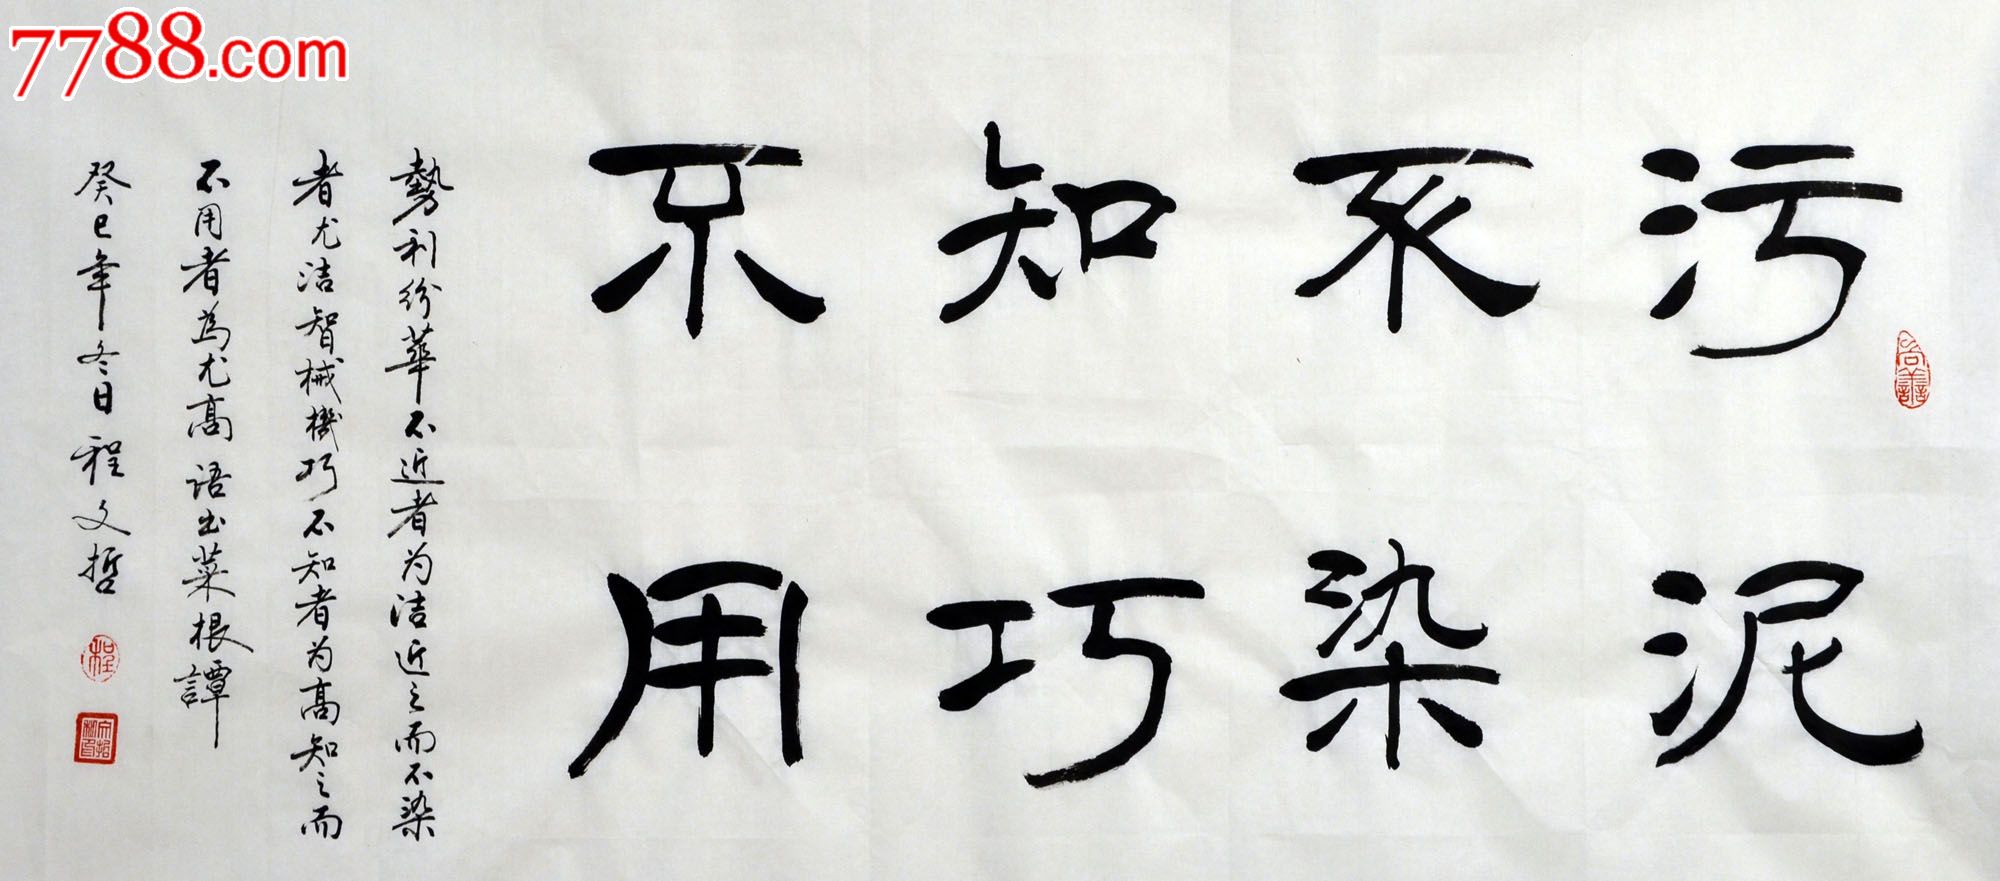 7788.com
污泥
不染
知巧
不用
勢利紛華不近者为洁近之而不染
者尤洁智械機巧不知者为高知之而
不用者為尤高语出菜根譚
癸巳年冬日程文哲
程